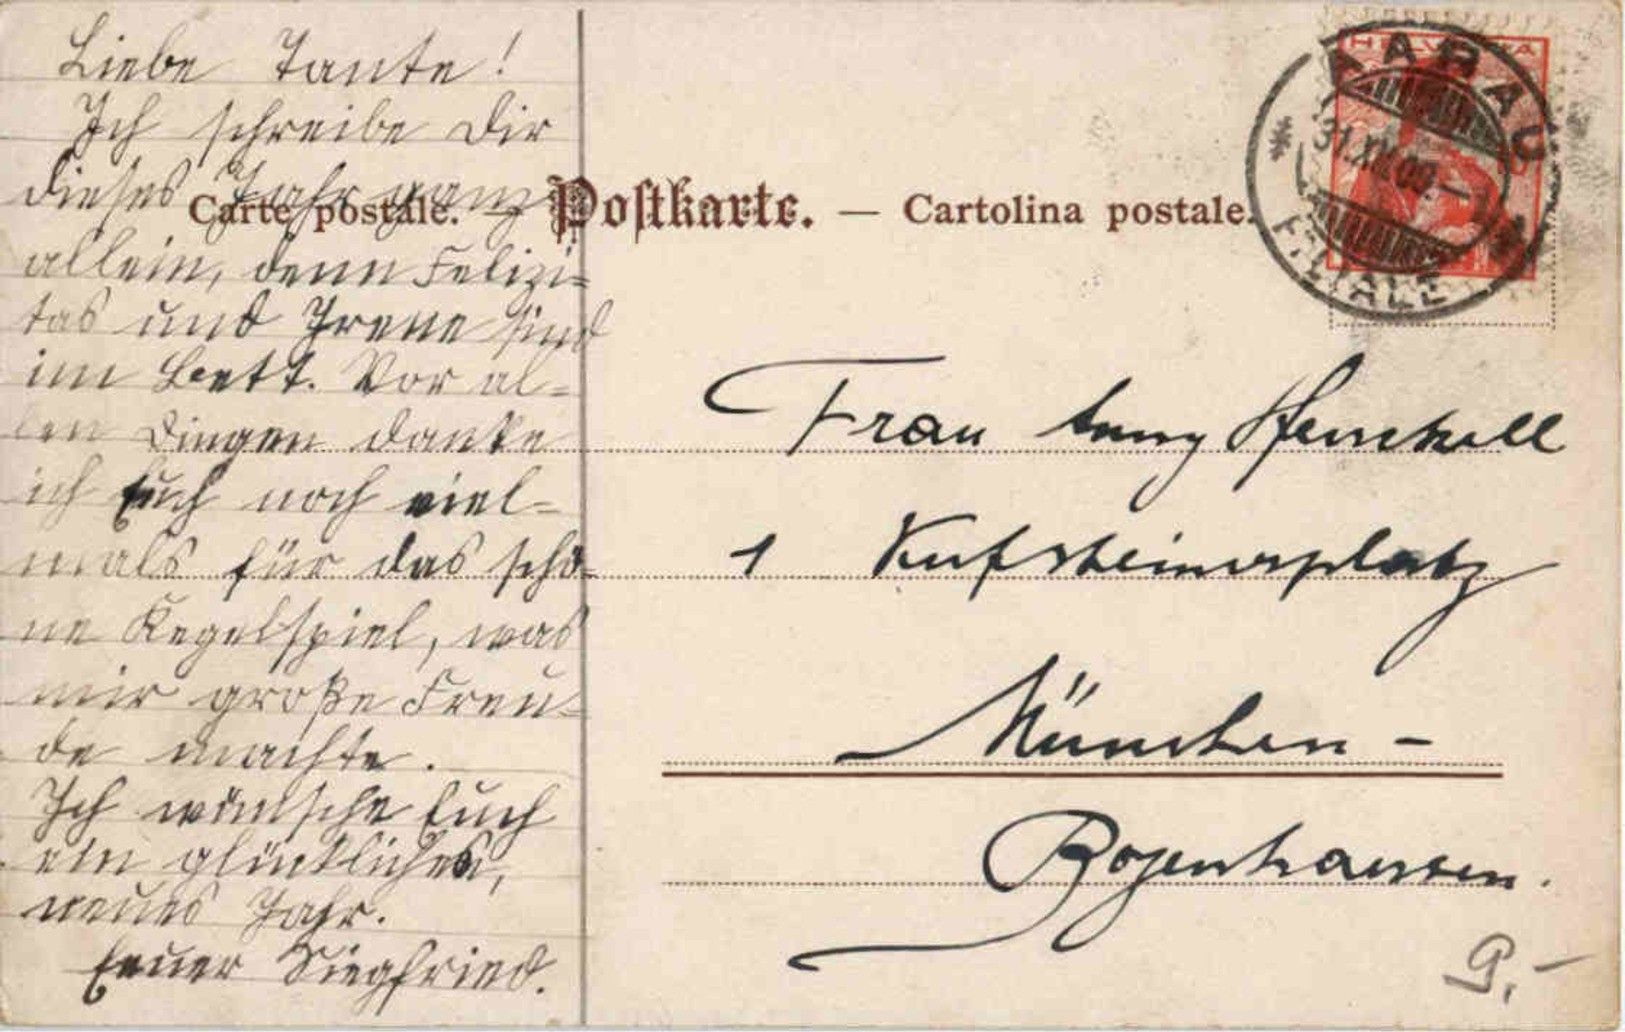 Liebe Tante!
Ich schreibe Dir
dieses Jahr ganz
allein, denn Felizi=
tas und Irene sind
im Bett. Vor al=
len Dingen danke
ich Euch noch viel=
mals für das schö=
ne Kegelspiel, was
mir große Freu=
de machte.
Ich wünsche Euch
ein glückliches,
neues Jahr.
Euer Siegfried.
Carte postale. — Postkarte. — Cartolina postale.
HELVETIA
AARAU
31.XII.09.–
FILIALE
Frau Henckell
1 Kufsteinerplatz
München –
Bogenhausen.
9,–